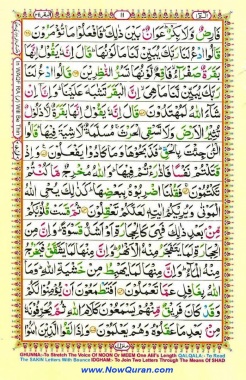 البقرة ٢
١١
الٓمّٓ ١
فَارِضٌ وَّلَا بِكْرٌ عَوَانٌۢ بَيْنَ ذٰلِكَ فَافْعَلُوْا مَا تُؤْمَرُوْنَ
قَالُوا ادْعُ لَنَا رَبَّكَ يُبَيِّنْ لَّنَا مَا لَوْنُهَا قَالَ اِنَّهٗ يَقُوْلُ اِنَّهَا
بَقَرَةٌ صَفْرَآءُ فَاقِعٌ لَّوْنُهَا تَسُرُّ النّٰظِرِيْنَ قَالُوا ادْعُ لَنَا
رَبَّكَ يُبَيِّنْ لَّنَا مَا هِيَ اِنَّ الْبَقَرَ تَشٰبَهَ عَلَيْنَا وَاِنَّآ اِنْ
شَآءَ اللّٰهُ لَمُهْتَدُوْنَ قَالَ اِنَّهٗ يَقُوْلُ اِنَّهَا بَقَرَةٌ لَّا ذَلُوْلٌ
تُثِيْرُ الْاَرْضَ وَلَا تَسْقِي الْحَرْثَ مُسَلَّمَةٌ لَّا شِيَةَ فِيْهَا قَالُوا
الْـٰٔنَ جِئْتَ بِالْحَقِّ فَذَبَحُوْهَا وَمَا كَادُوْا يَفْعَلُوْنَ وَاِذْ
قَتَلْتُمْ نَفْسًا فَادّٰرَءْتُمْ فِيْهَا وَاللّٰهُ مُخْرِجٌ مَّا كُنْتُمْ
تَكْتُمُوْنَ فَقُلْنَا اضْرِبُوْهُ بِبَعْضِهَا كَذٰلِكَ يُحْيِ اللّٰهُ
الْمَوْتٰى وَيُرِيْكُمْ اٰيٰتِهٖ لَعَلَّكُمْ تَعْقِلُوْنَ ثُمَّ قَسَتْ قُلُوْبُكُمْ
مِّنْۢ بَعْدِ ذٰلِكَ فَهِيَ كَالْحِجَارَةِ اَوْ اَشَدُّ قَسْوَةً وَاِنَّ مِنَ
الْحِجَارَةِ لَمَا يَتَفَجَّرُ مِنْهُ الْاَنْهٰرُ وَاِنَّ مِنْهَا لَمَا يَشَّقَّقُ فَيَخْرُجُ
مِنْهُ الْمَآءُ وَاِنَّ مِنْهَا لَمَا يَهْبِطُ مِنْ خَشْيَةِ اللّٰهِ وَمَا
اللّٰهُ بِغَافِلٍ عَمَّا تَعْمَلُوْنَ اَفَتَطْمَعُوْنَ اَنْ يُّؤْمِنُوْا لَكُمْ
وَقَدْ كَانَ فَرِيْقٌ مِّنْهُمْ يَسْمَعُوْنَ كَلٰمَ اللّٰهِ ثُمَّ يُحَرِّفُوْنَهٗ
مِنْۢ بَعْدِ مَا عَقَلُوْهُ وَهُمْ يَعْلَمُوْنَ وَاِذَا لَقُوا الَّذِيْنَ
GHUNNA:-To Stretch The Voice Of NOON Or MEEM One Alif's Length QALQALA:- To Read
The SAKIN Letters With Bounce IDGHAM:- To Join Two Letters Through The Means Of SHAD
www.NowQuran.com